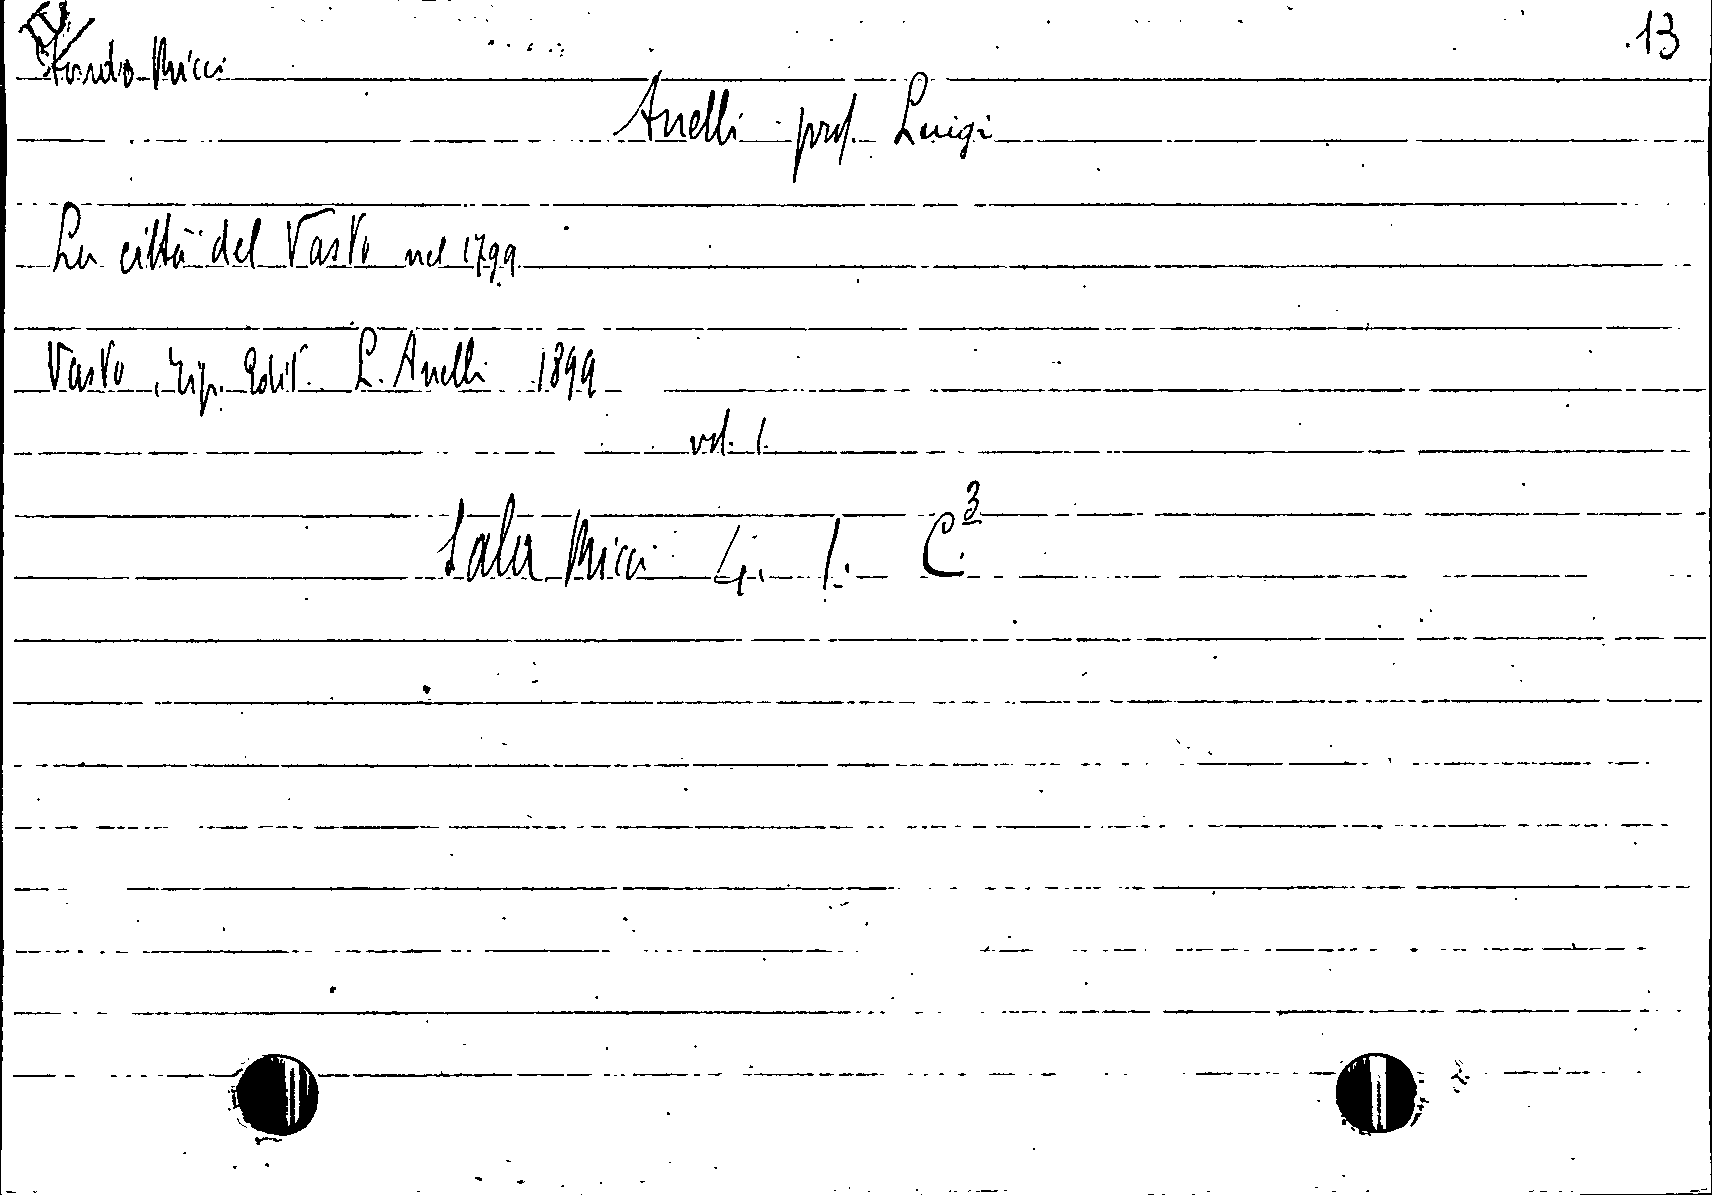 II
Fondo Ricci
13
Anelli prof. Luigi
La città del Vasto nel 1799
Vasto, Tip. Edit. L. Anelli 1899
vol. 1.
Sala Ricci 4. 1. C.3